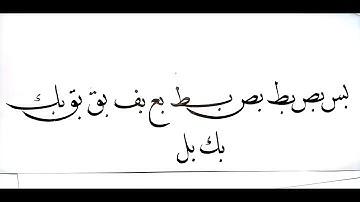 بس بص بط بص بط بع بف بق بق بك
بك بل